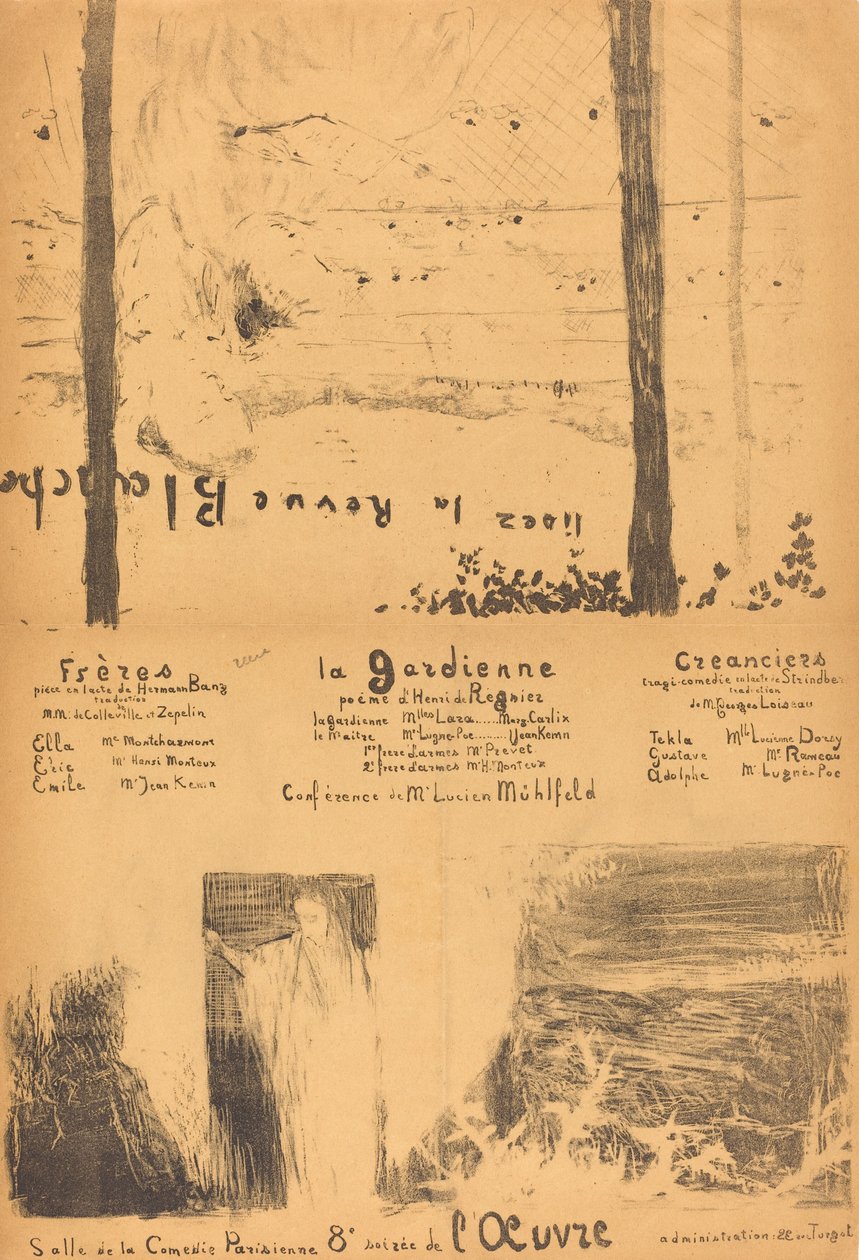 lisez la Revue Blanche
Frères
pièce en 1 acte de Hermann Bang
traduction
de
M.M. de Colleville et Zepelin
Ella Me Montcharmont
Eric Mr Henri Monteux
Emile Mr Jean Kemm
la gardienne
poème d'Henri de Regnier
la gardienne Mlles Lara......Marg. Carlix
le Maitre Mr Lugné-Poe.........Jean Kemm
1er frere d'armes Mr Prevet
2e frere d'armes Mr H. Monteux
Conférence de Mr Lucien Mühlfeld
Creanciers
tragi-comedie en 1 acte de Strindber
traduction
de M. Georges Loiseau
Tekla Mlle Lucienne Dorsy
Gustave Mr Rameau
Adolphe Mr Lugné-Poe
Salle de la Comedie Parisienne 8e soirée de l'Œuvre
administration: 22 rue Turgot